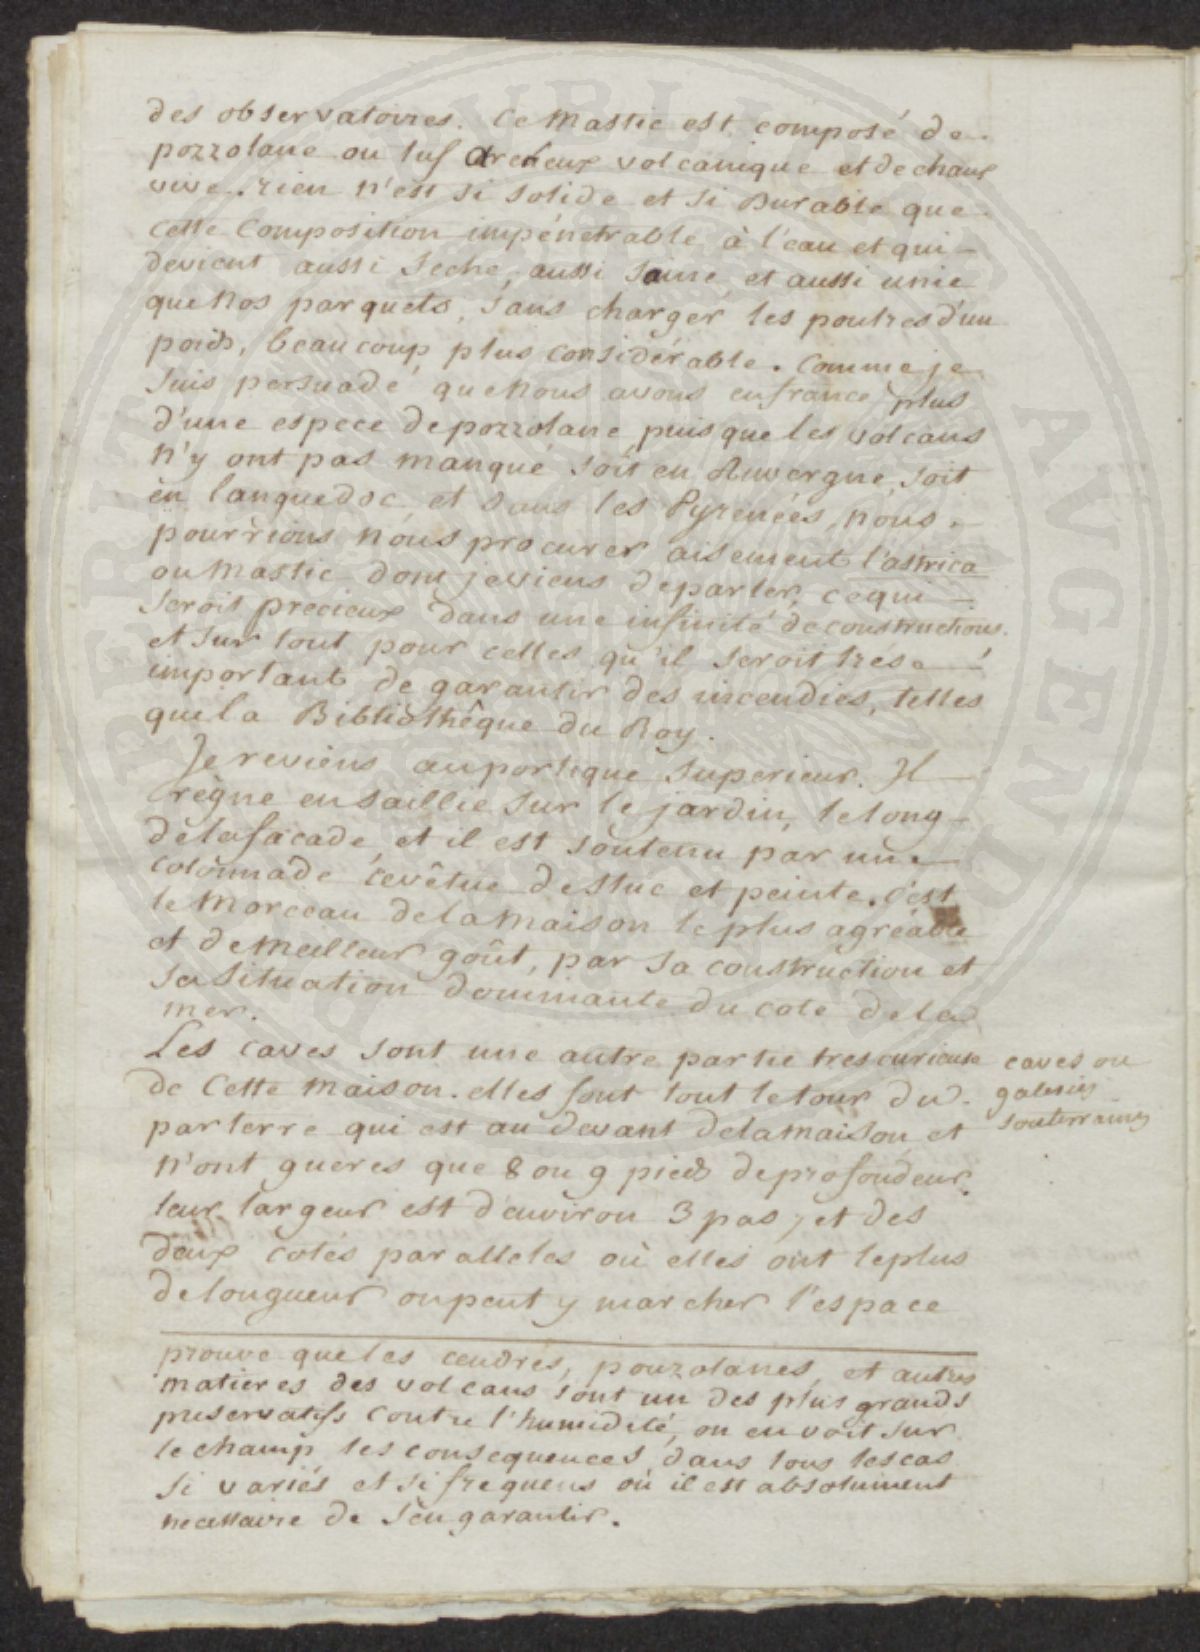 des observatoires. Ce Mastic est composé de
pozzolane ou tuf areneux volcanique et de chaux
vive. rien n'est si solide et si Durable que
cette Composition impénetrable à l'eau et qui –
devient aussi seche, aussi saine et aussi unie
que Nos parquets, sans charger les poutres d'un
poids, beaucoup plus considérable. Comme je
suis persuadé que Nous avons en france plus
d'une espece de pozzolane puisque les volcans
n'y ont pas manqué soit en Auvergne, soit
en languedoc, et dans les Pyrenées, nous –
pourrions nous procurer aisement l'astrica
ou Mastic dont je viens de parler, ce qui –
seroit precieux dans une infinité de constructions
et sur tout pour celles qu'il seroit très –
important de garantir des incendies, telles
que la Bibliothêque du Roy.
Je reviens au portique superieur. Il –
règne en saillie sur le jardin, le long –
de la facade, et il est soutenu par une –
colonnade revêtue de stuc et peinte. c'est
le Morceau de la Maison le plus agréable
et de Meilleur goût, par sa construction et
sa situation dominante du coté de la
mer.
Les caves sont une autre partie tres curieuse
de Cette Maison. elles font tout le tour du
parterre qui est au devant de la Maison, et
n'ont gueres que 8 ou 9 pieds de profondeur.
leur largeur est d'environ 3 pas, et des
deux cotés paralleles où elles ont le plus
de longueur on peut y marcher l'espace
caves ou
galeries
souterraines
prouve que les cendres, pouzolanes, et autres
matieres des volcans sont un des plus grands
preservatifs contre l'humidité, on en voit sur
le champ les consequences dans tous les cas
si variés et si frequens où il est absolument
necessaire de s'en garantir.
PERIT
PUBLICIT
AVGENDA